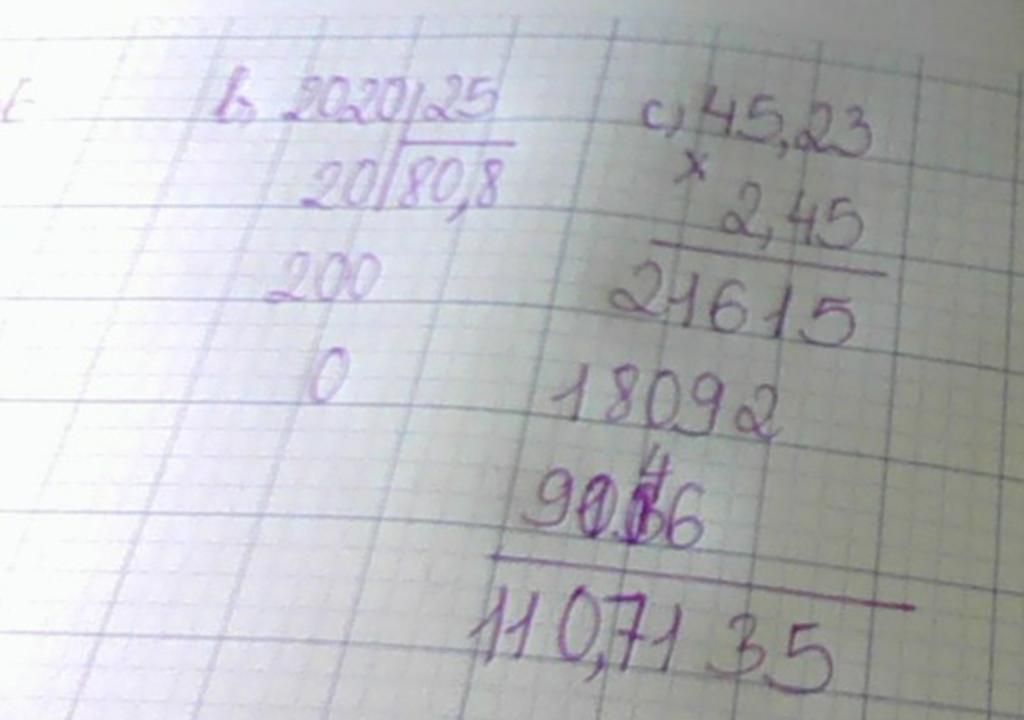 b, 2020 25
20 80,8
200
0
c, 45,23
x
2,45
21615
18092
4
9046
110,7135